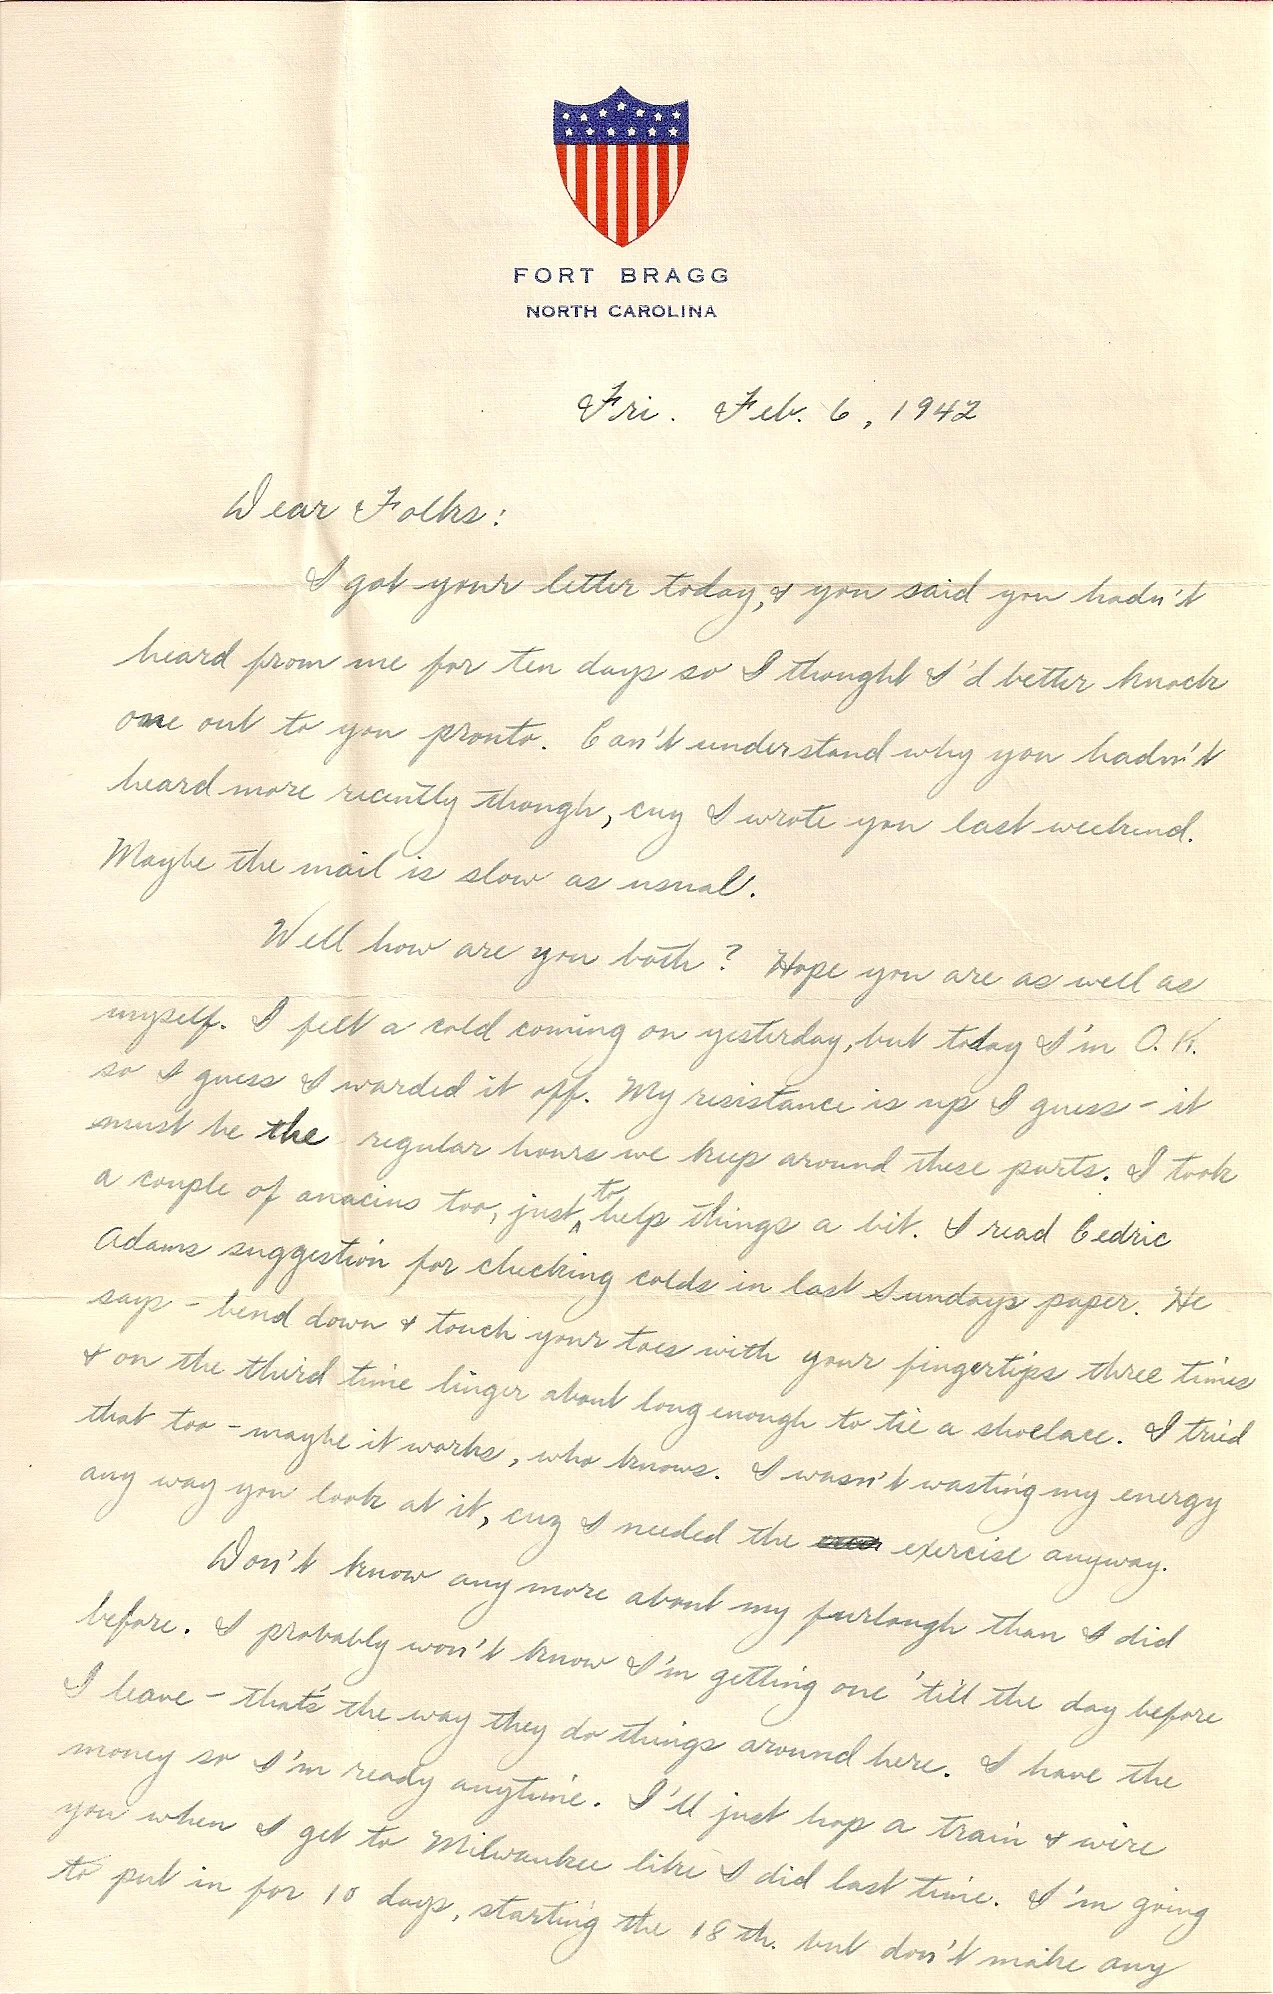 FORT BRAGG
NORTH CAROLINA
Fri. Feb. 6, 1942
Dear Folks:
I got your letter today, & you said you hadn't
heard from me for ten days so I thought I'd better knock
one out to you pronto. Can't understand why you hadn't
heard more recently though, cuz I wrote you last weekend.
Maybe the mail is slow as usual.
Well how are you both? Hope you are as well as
myself. I felt a cold coming on yesterday, but today I'm O.K.
so I guess I warded it off. My resistance is up I guess - it
must be the regular hours we keep around these parts. I took
a couple of anacins too, just to help things a bit. I read Cedric
Adams suggestion for checking colds in last Sundays paper. He
says - bend down & touch your toes with your fingertips three times
& on the third time linger about long enough to tie a shoelace. I tried
that too - maybe it works, who knows. I wasn't wasting my energy
any way you look at it, cuz I needed the exercise anyway.
Don't know any more about my furlough than I did
before. I probably won't know I'm getting one 'till the day before
I leave - that's the way they do things around here. I have the
money so I'm ready anytime. I'll just hop a train & wire
you when I get to Milwaukee like I did last time. I'm going
to put in for 10 days, starting the 18th. but don't make any